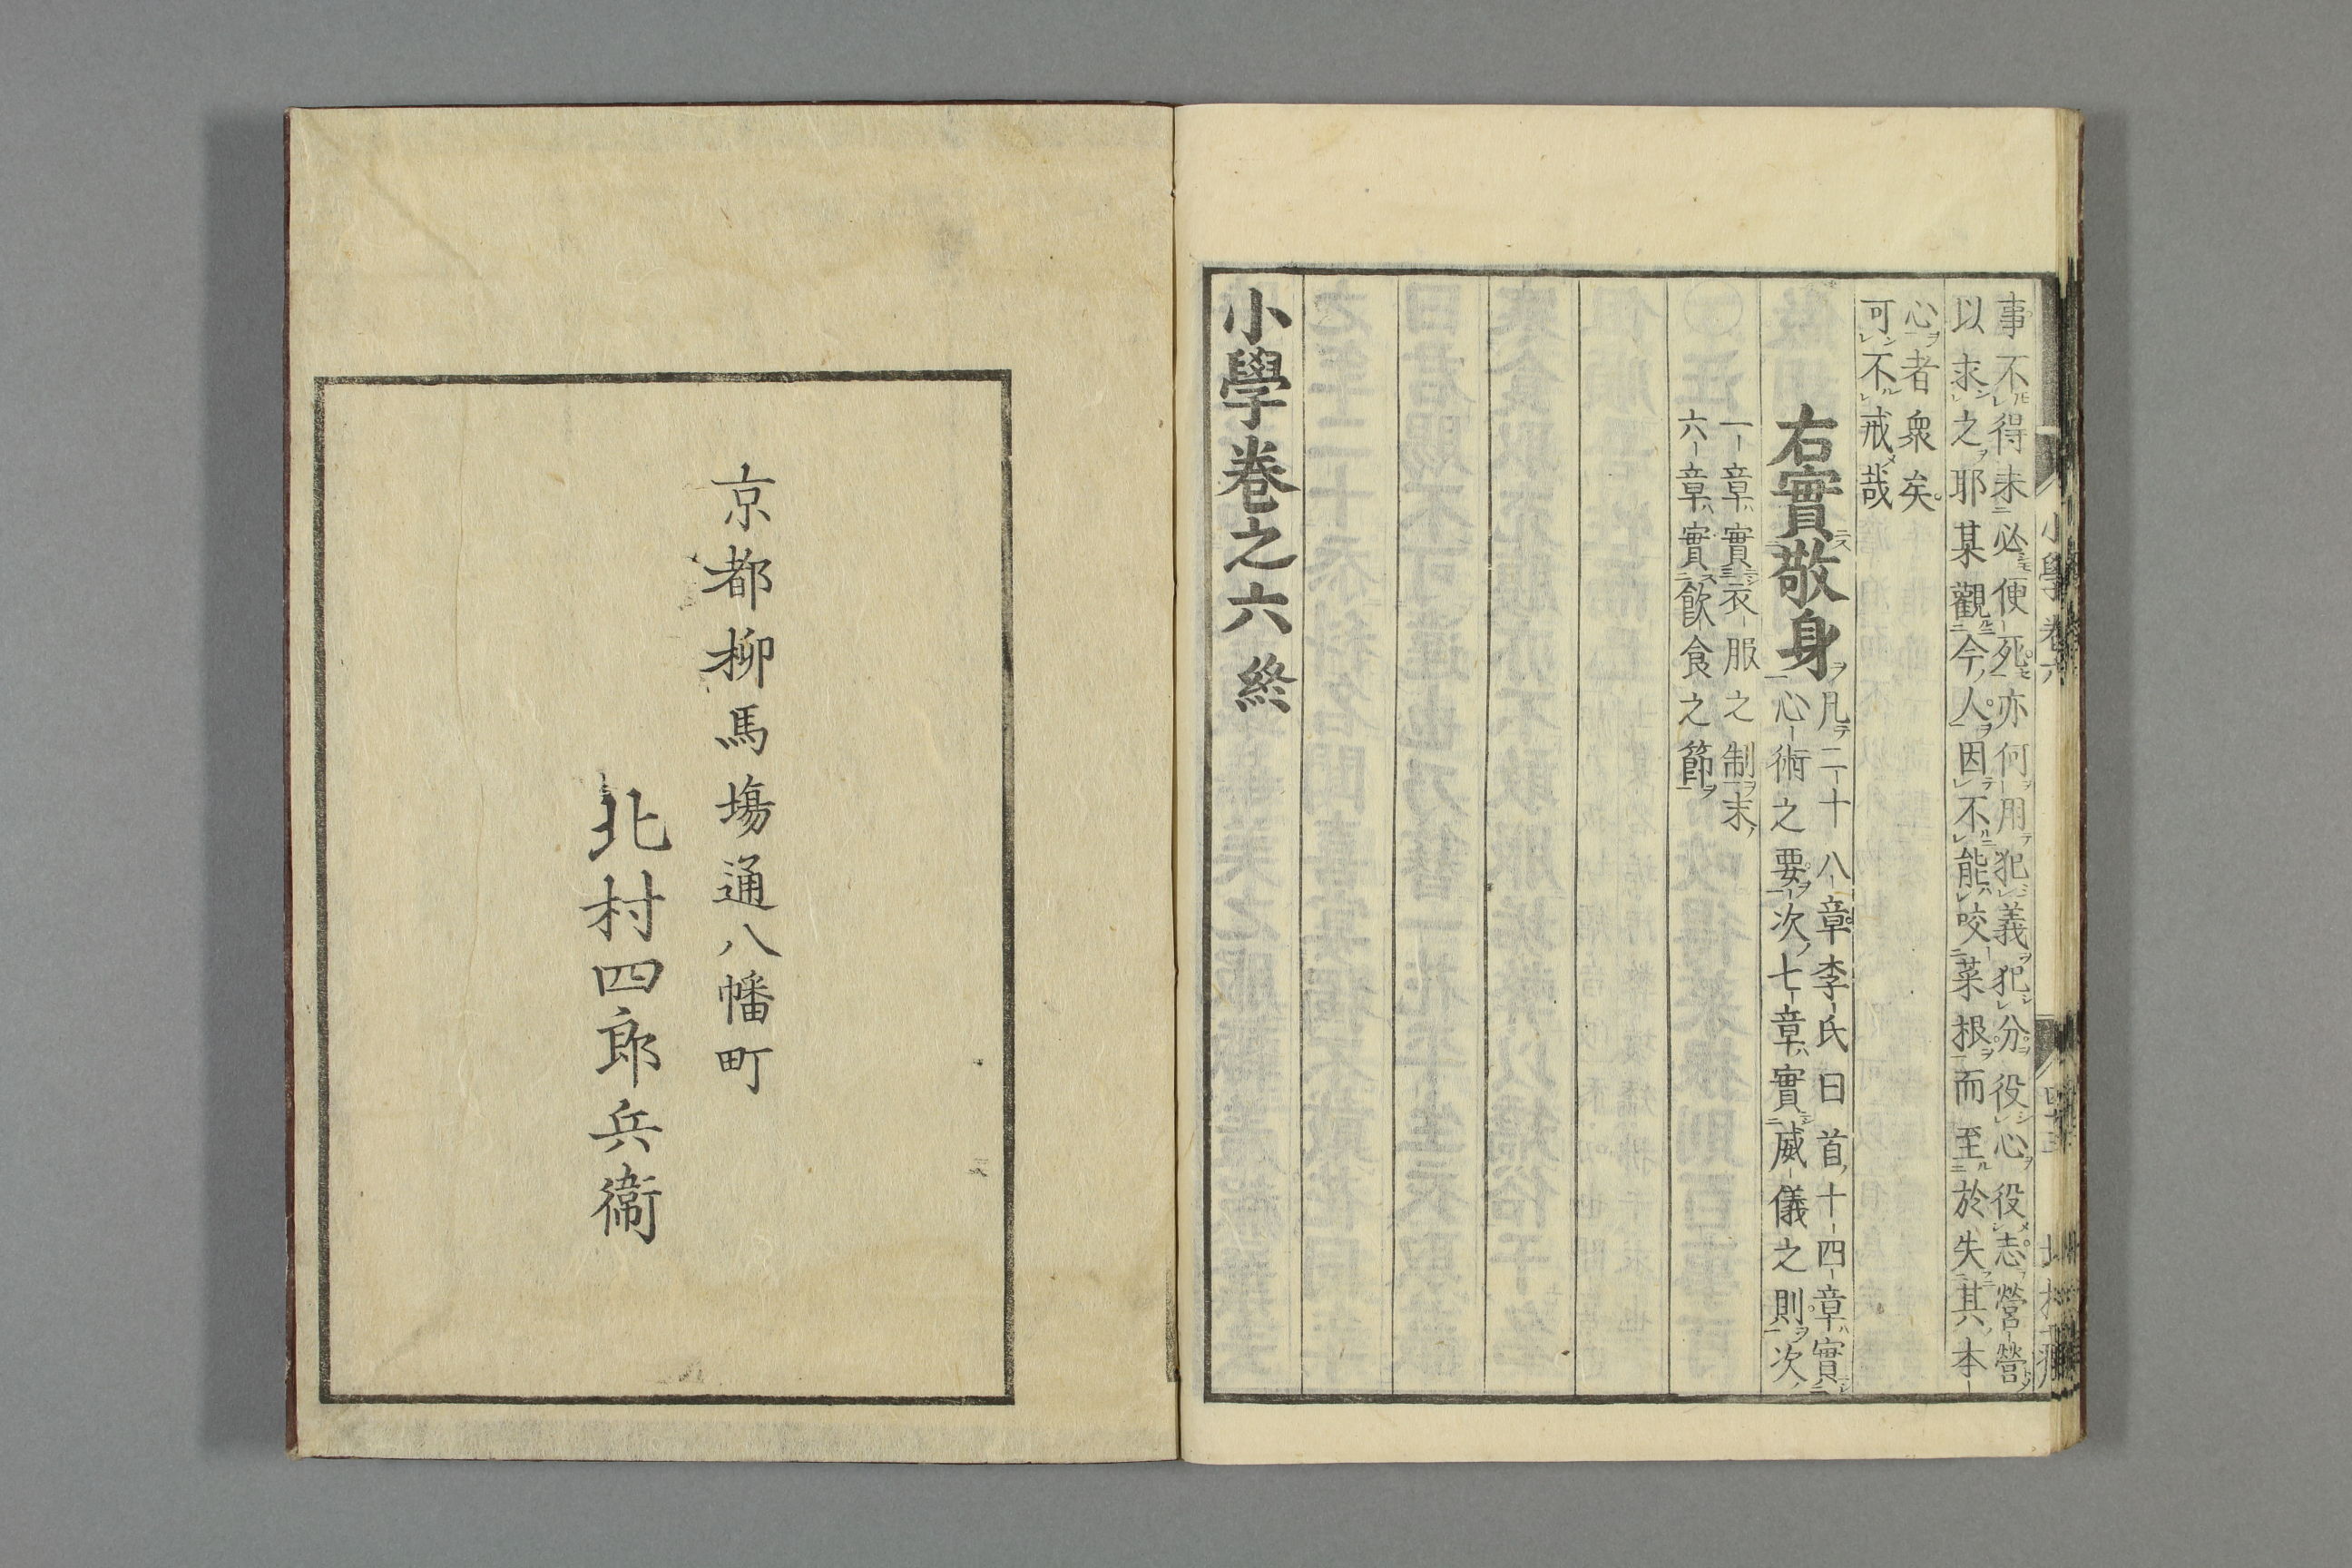 事不得未必便死亦何用犯義犯分役心役志營營
以求之耶某觀今人因不能咬菜根而至於失其本
心者衆矣
可不戒哉
右實敬身
凡二十八章李氏曰首十四章實
心術之要次七章實威儀之則次
一章實衣服之制末
六章實飲食之節
小學卷之六終
京都柳馬塲通八幡町
北村四郎兵衞